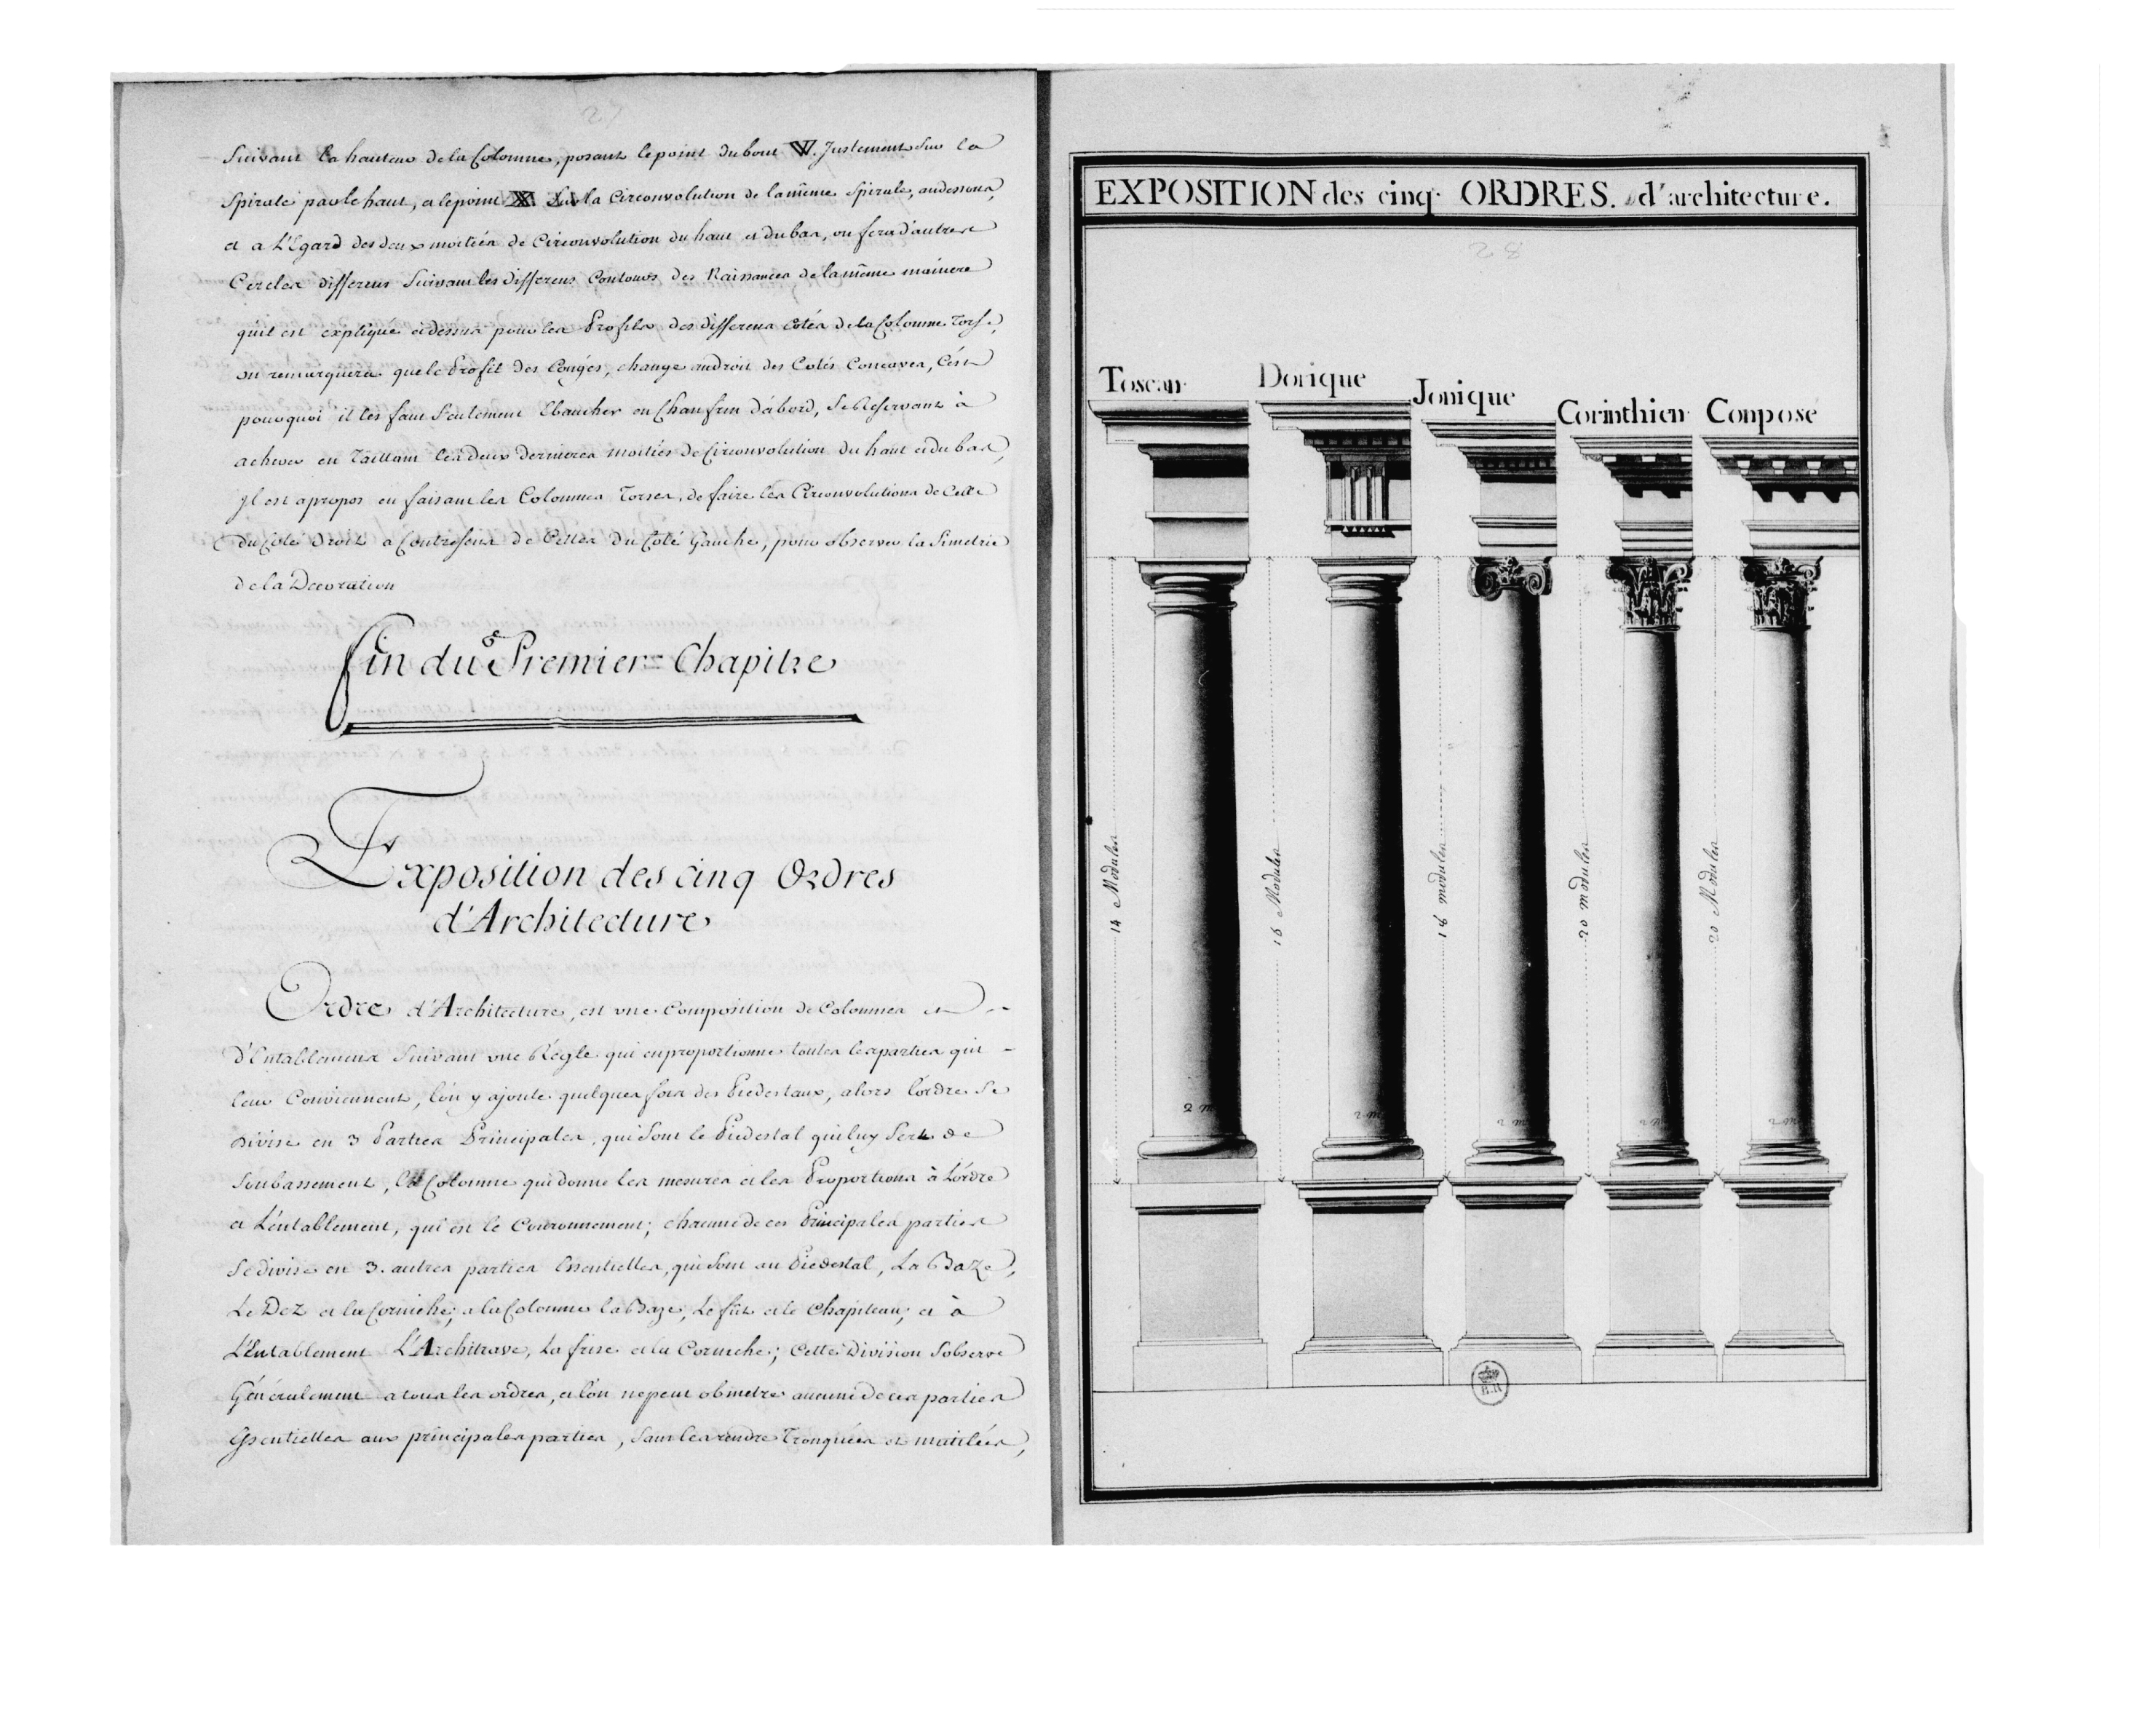 27
Suivant la hauteur de la Colomne, posant le point du bout W. Justement Sur la
Spirale par le haut, et le point X Sur la Circonvolution de la même Spirale, audessous,
et a L'Egard des deux moitiés de Circonvolution du haut et du bas, on fera d'autres
Cercles differens Suivant les differens Contours des Naissances de la même maniere
qu'il est expliqué cidessus pour les Profils des differens Cotés de la Colomne Torse,
on remarquera que le Profil des Congés, change audroit des Cotés Concaves, C'est
pourquoi il les faut Seulement Ebaucher en Chanfrin d'abord, Se Reservant à
achever en Taillant les deux dernieres moitiés de Circonvolution du haut et du bas,
Il est apropos en faisant les Colomnes Torses, de faire les Circonvolutions de Celle
du Coté Droit a Contresens de Celles du Coté Gauche, pour observer la Simetrie
de la Decoration
fin du Premier Chapitre
Exposition des cinq Ordres
d'Architecture
Ordre d'Architecture, est une Composition de Colomnes et
d'Entablemens Suivant une Régle qui en proportionne toutes les parties qui
leur Conviennent, l'on y ajoute quelques fois des Piedestaux, alors l'ordre Se
Divise en 3 Parties Principales, qui Sont le Piedestal qui luy Sert de
Soubassement, la Colomne qui donne les mesures et les Proportions à L'ordre
et L'éntablement, qui est le Couronnement; chacune de ces Principales parties
Se divise en 3. autres parties Essentielles, qui Sont au Piedestal, La Baze,
Le Dez et la Corniche; a la Colomne la Baze, Le fût et le Chapiteau; et à
L'Entablement L'Architrave, La frise et la Corniche; Cette Division S'observe
Généralement a tous les ordres, et l'on ne peut obmetre aucune de ces parties
Essentielles aux principales parties, Sans les rendre Tronquées et mutilées,
EXPOSITION des cinq ORDRES. d'architecture.
28
Toscan
Dorique
Jonique
Corinthien
Conposé
14 Modules
16 Modules
18 modules
20 modules
20 Modules
2 m
2 m
2 m
2 m
2 m